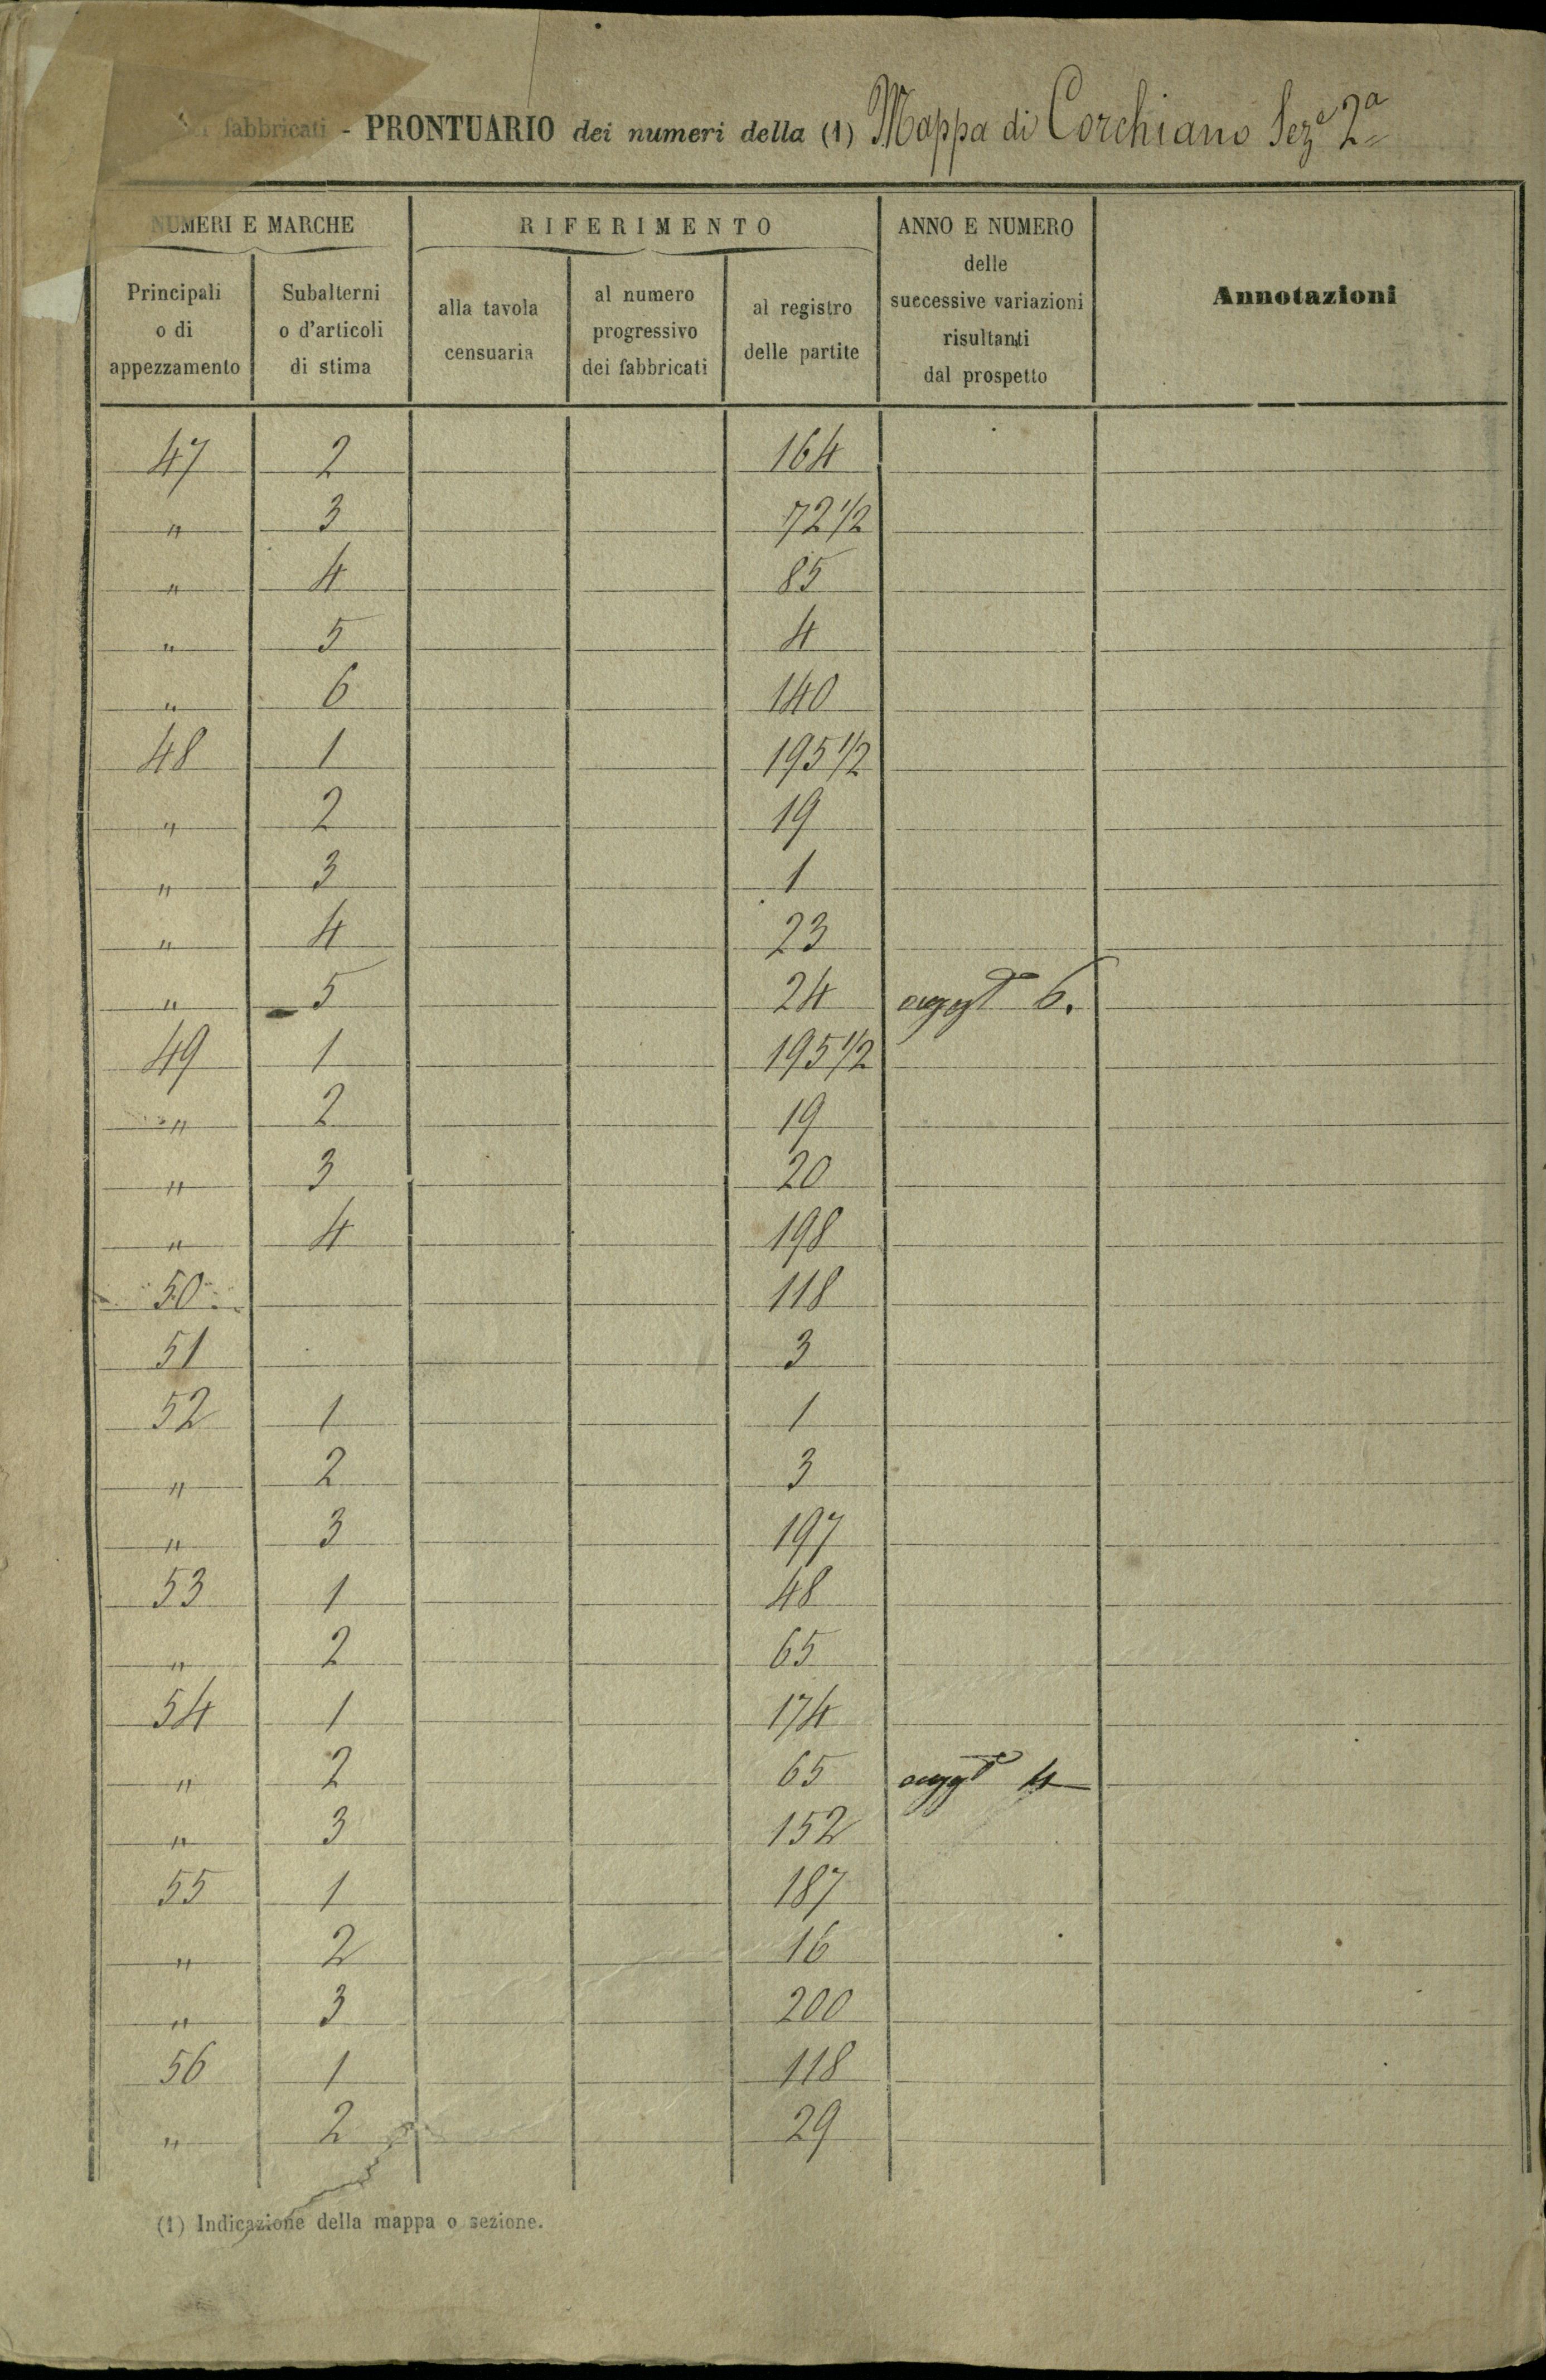 fabbricati - PRONTUARIO dei numeri della (1) Mappa di Corchiano Sez.e 2a
NUMERI E MARCHE
RIFERIMENTO
ANNO E NUMERO
delle
successive variazioni
risultanti
dal prospetto
Annotazioni
Principali
o di
appezzamento
Subalterni
o d'articoli
di stima
alla tavola
censuaria
al numero
progressivo
dei fabbricati
al registro
delle partite
47 2 164
" 3 72 1/2
" 4 85
" 5 4
" 6 140
48 1 195 1/2
" 2 19
" 3 1
" 4 23
" 5 24 6.
49 1 195 1/2
" 2 19
" 3 20
" 4 198
50 118
51 3
52 1 1
" 2 3
" 3 197
53 1 48
" 2 65
54 1 174
" 2 65 4
" 3 152
55 1 187
" 2 16
" 3 200
56 1 118
" 2 29
(1) Indicazione della mappa o sezione.